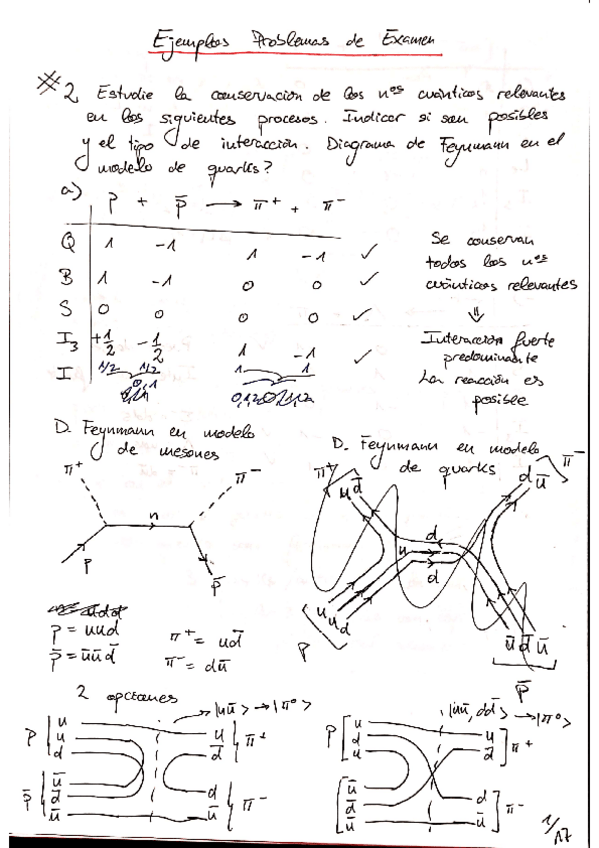 Ejemplos Problemas de Examen
#2 Estudie la conservación de los nos cuánticos relevantes
en los siguientes procesos. Indicar si son posibles
y el tipo de interacción. Diagrama de Feynmann en el
modelo de quarks?
a) p + p̄ → π⁺ + π⁻
Q 1 -1 1 -1 ✓
B 1 -1 0 0 ✓
S 0 0 0 0 ✓
I₃ +1/2 -1/2 1 -1 ✓
I 1/2 1/2 1 1
0,1 0,1,2
Se conservan
todos los nos
cuánticos relevantes
⇓
Interacción fuerte
predominante
La reacción es
posible
D. Feynmann en modelo
de mesones
π⁺ π⁻
n
p p̄
D. Feynmann en modelo
de quarks
π⁺ π⁻
u d̄ d ū
d
u
d
u u d ū d̄ ū
p p̄
p = uud π⁺ = ud̄
p̄ = ūūd̄ π⁻ = dū
2 opciones
|uū> → |π⁰>
p u u d
p̄ ū d̄ ū
u d̄ π⁺
d ū π⁻
|uū, dd̄> → |π⁰>
p u d u
ū d̄ ū
u d̄ π⁺
d ū π⁻
1/17